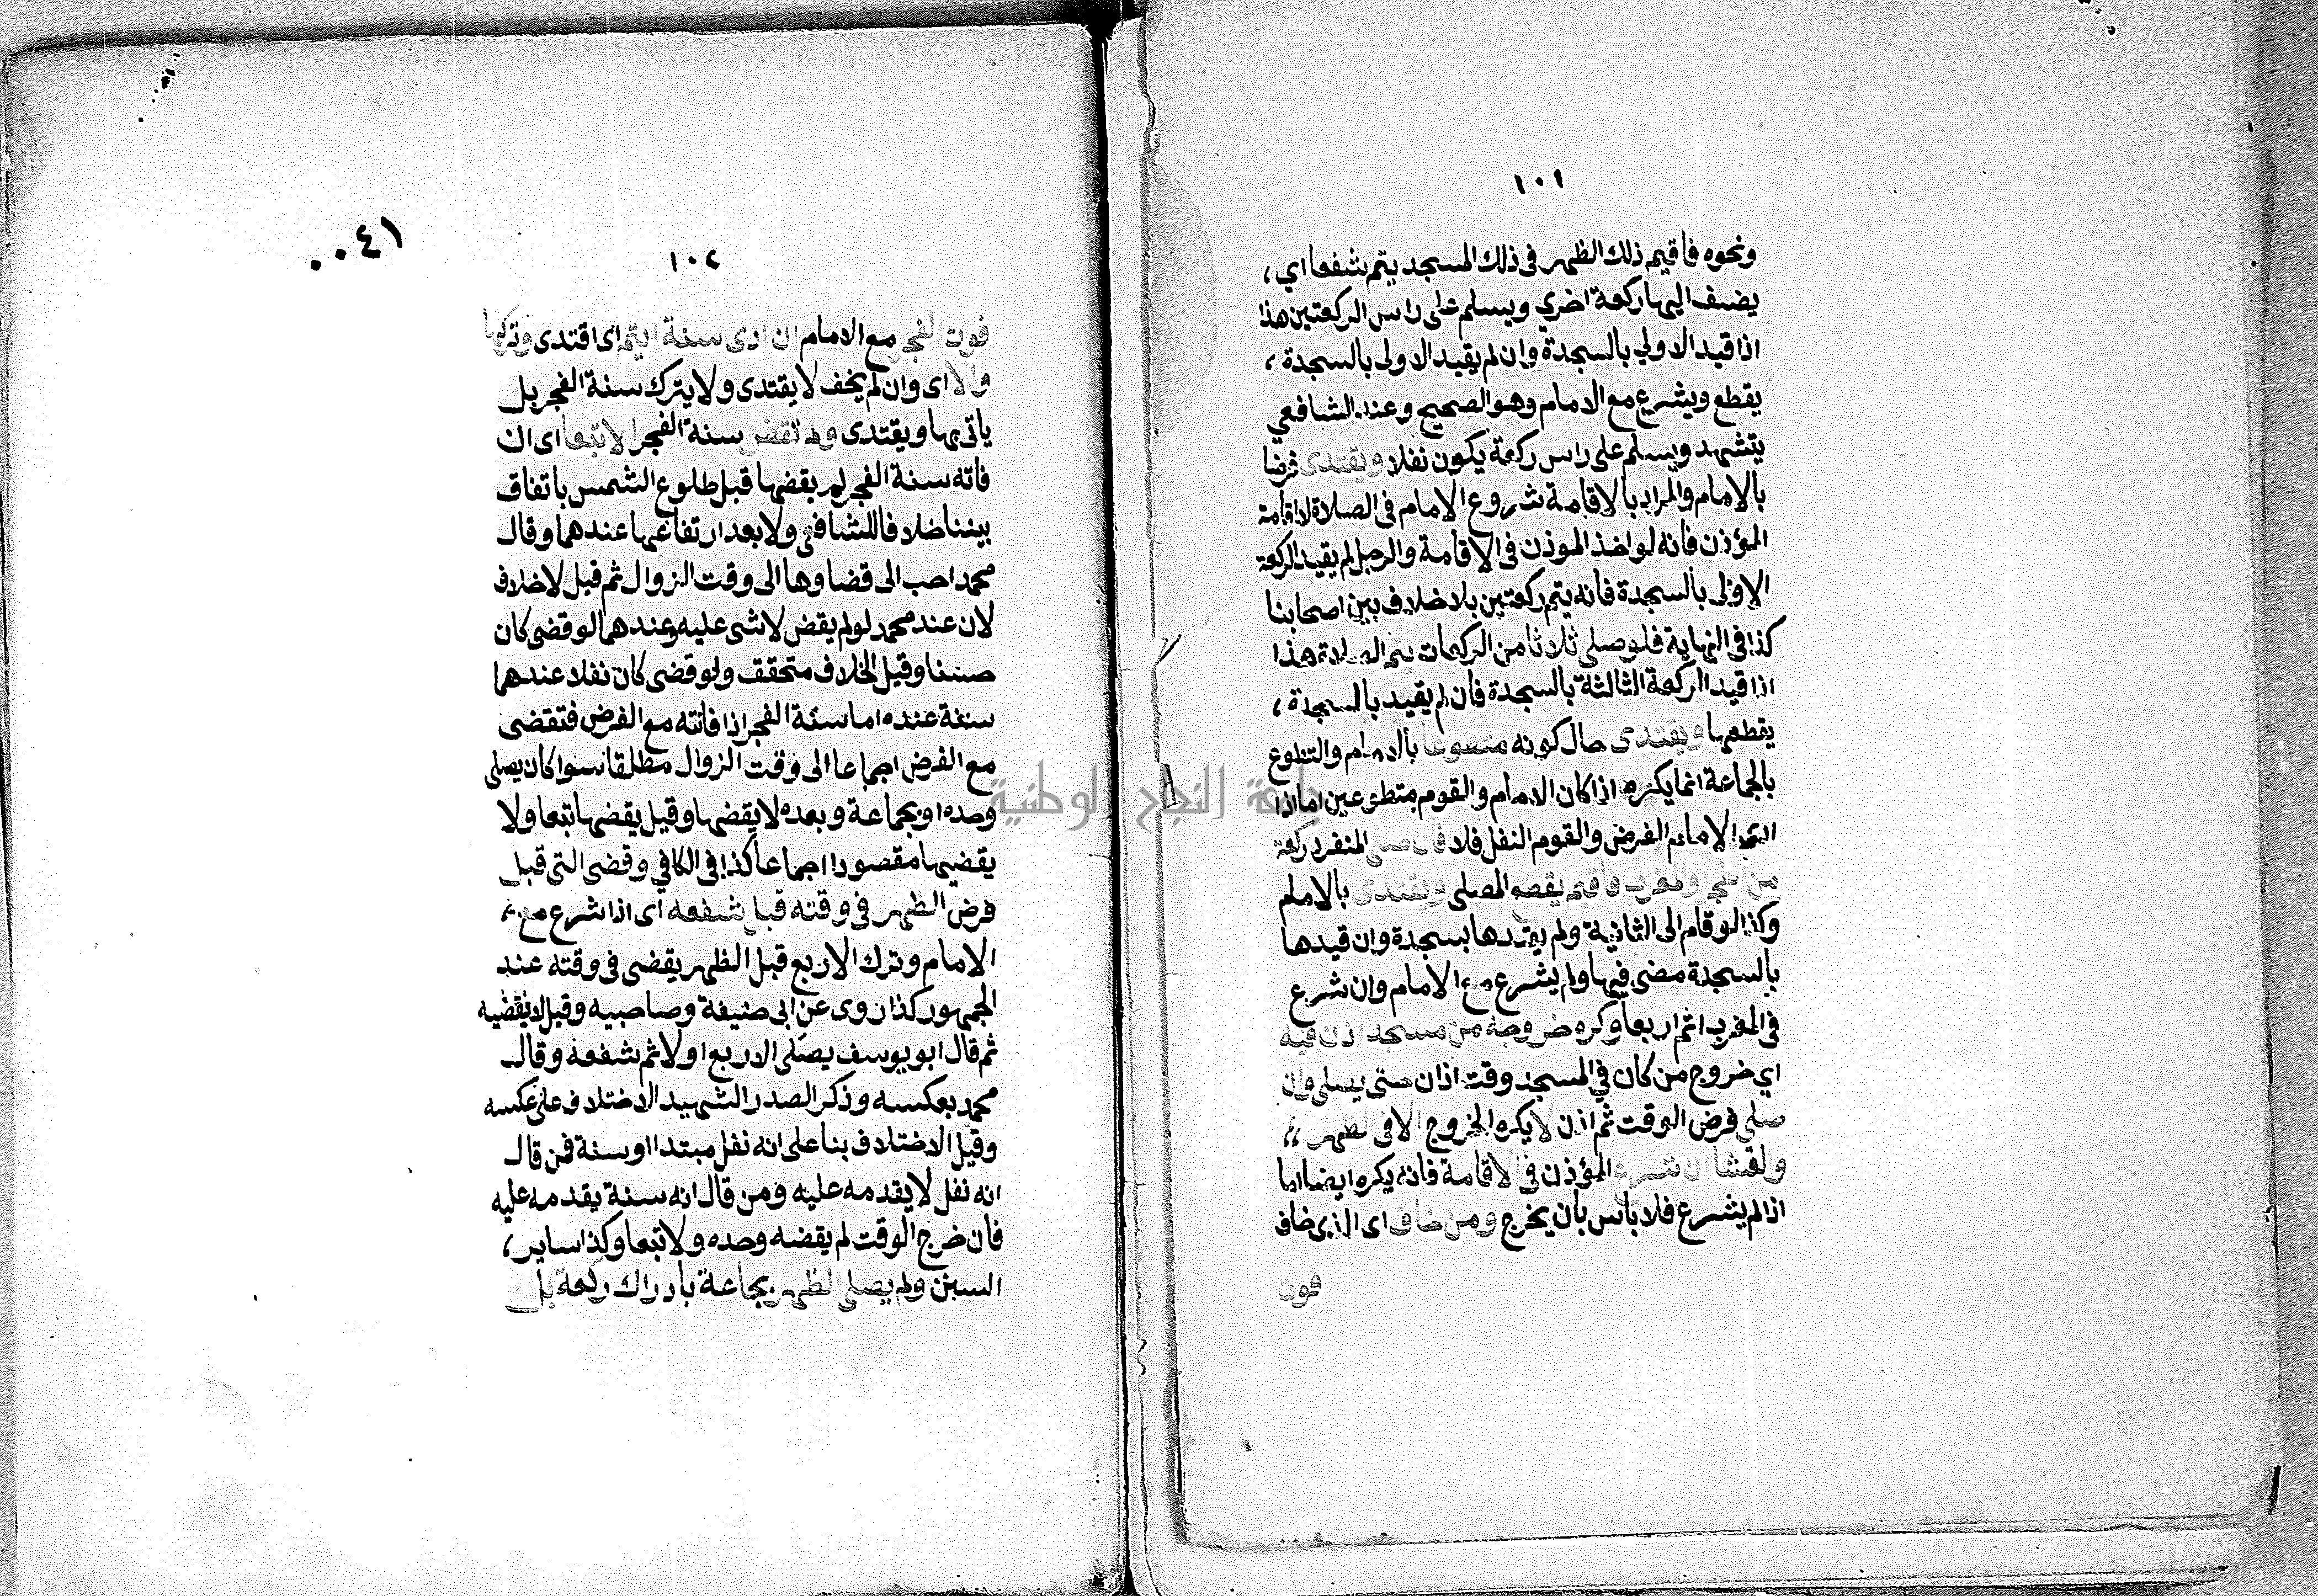 ١٠١
ونحوه فاقيم ذلك الظهر في ذلك المسجد يتم شفعا اي
يضف اليها ركعة اخري ويسلم على راس الركعتين هذا
اذا قيد الاولي بالسجدة وان لم يقيد الاولى بالسجدة
يقطع ويشرع مع الامام وهو الصحيح وعند الشافعي
يتشهد ويسلم على راس ركعة يكون نفلا ويقتدى فرضا
بالامام والمراد بالاقامة شروع الامام في الصلاة لا اقامة
المؤذن فانه لو اخذ الموذن في الاقامة والرجل لم يقيد الركعة
الاولى بالسجدة فانه يتم ركعتين بلا خلاف بين اصحابنا
كذا في النهاية فلو صلى ثلاثا من الركعات يتم الصلاة هذا
اذا قيد الركعة الثالثة بالسجدة فان لم يقيد بالسجدة
يقطعها ويقتدى حال كونه متطوعا بالامام والتطوع
بالجماعة انما يكره اذا كان الامام والقوم متطوعين اما اذا
ادى الامام الفرض والقوم النفل فلا فان صلى المنفرد ركعة
من الفجر والمغرب فاقيم يقطع المصلى ويقتدى بالامام
وكذا لو قام الى الثانية ولم يقيدها بسجدة وان قيدها
بالسجدة مضى فيها ولم يشرع مع الامام وان شرع
في المغرب اتم اربعا وكره خروجه من مسجد اذن فيه
اي خروج من كان في المسجد وقت اذان حتى يصلى وان
صلى فرض الوقت ثم اذن لا يكره الخروج الا في الظهر
والعشا ان شرع المؤذن في الاقامة فانه يكره ايضا اما
اذا لم يشرع فلا باس بان يخرج ومن خاف اى الذي خاف
فوت
٠٠٤١
١٠٢
فوت الفجر مع الامام ان ادى سنة ايتم اى اقتدى وتركها
والا اى وان لم يخف لا يقتدى ولا يترك سنة الفجر بل
ياتى بها ويقتدى ولم تقض سنة الفجر الا تبعا اى ان
فاته سنة الفجر لم يقضها قبل طلوع الشمس باتفاق
بيننا خلافا للشافعي ولا بعد ارتفاعها عندهما وقال
محمد احب الى قضاوها الى وقت الزوال ثم قيل لا خلاف
لان عند محمد لو لم يقض لا شى عليه وعندهما لو قضى كان
حسنا وقيل الخلاف متحقق ولو قضى كان نفلا عندهما
سنة عنده اما سنة الفجر اذا فاتته مع الفرض فتقضى
مع الفرض اجماعا الى وقت الزوال مطلقا سوا كان يصلى
وحده او بجماعة وبعده لا يقضها وقيل يقضها تبعا ولا
يقضيها مقصودا اجماعا كذا في الكافي وقضى التى قبل
فرض الظهر في وقته قبل شفعه اى اذا شرع مع
الامام وترك الاربع قبل الظهر يقضى في وقته عند
الجمهور كذا روى عن ابى حنيفة وصاحبيه وقيل لا يقضيه
ثم قال ابو يوسف يصلى الاربع اولا ثم شفعه وقال
محمد بعكسه وذكر الصدر الشهيد الاختلاف على عكسه
وقيل الاختلاف بنا على انه نفل مبتدا او سنة فمن قال
انه نفل لا يقدمه عليه ومن قال انه سنة يقدمه عليه
فان خرج الوقت لم يقضه وحده ولا تبعا وكذا ساير
السنن ولم يصلى الظهر بجماعة بادراك ركعة بل
جامعة النجاح الوطنية